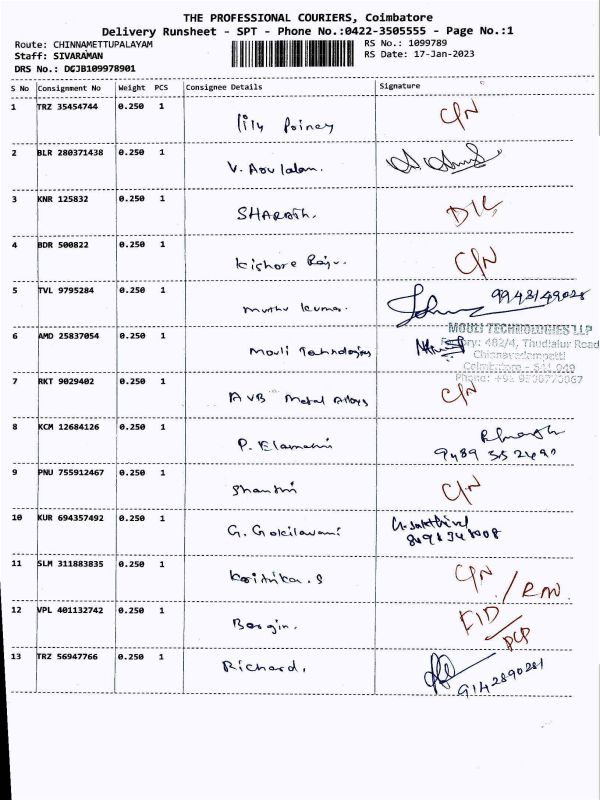 THE PROFESSIONAL COURIERS, Coimbatore
Delivery Runsheet - SPT - Phone No.:0422-3505555 - Page No.:1
Route: CHINNAMETTUPALAYAM RS No.: 1099789
Staff: SIVARAMAN RS Date: 17-Jan-2023
DRS No.: DCJB109978901
S No Consignment No Weight PCS Consignee Details Signature
1 TRZ 35454744 0.250 1
lily C/N
2 BLR 280371438 0.250 1
V.
3 KNR 125832 0.250 1
SHARATH. D/L
4 BDR 500822 0.250 1
Kishore Raju. C/N
5 TVL 9795284 0.250 1
muthu kumar.
6 AMD 25837054 0.250 1
Mouli Technologies MOULI TECHNOLOGIES LLP
482/4, Thudialur Road
Chinnavedampatti
Coimbatore - 641 049
7 RKT 9029402 0.250 1
AVB Metal Alloys C/N
8 KCM 12684126 0.250 1
P.
9 PNU 755912467 0.250 1
Shanthi C/N
10 KUR 694357492 0.250 1
G. Gokilavani
11 SLM 311883835 0.250 1
C/N
12 VPL 401132742 0.250 1
13 TRZ 56947766 0.250 1
Richard. 9142890281